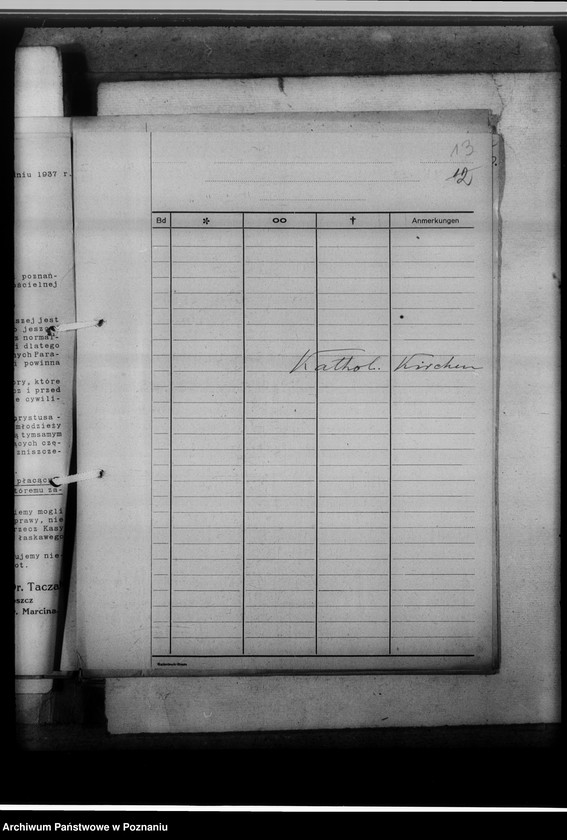 dniu 1937 r.
poznań-
ościelnej
szej jest
o jeszcz
z normal-
i dlatego
nych Para-
i powinna
ory, które
oz i przed
e cywili-
prystusa -
młodzieży
ą tymsamym
ących czę-
zniszcze-
płacąc
któremu za-
iemy mogli
prawy, nie
rzecz Kasy
łaskawego
ujemy nie-
ot.
Dr. Tacza
oszcz
w. Marcina
13
12
Bd * oo † Anmerkungen
Kathol. Kirchen
Archiwum Państwowe w Poznaniu